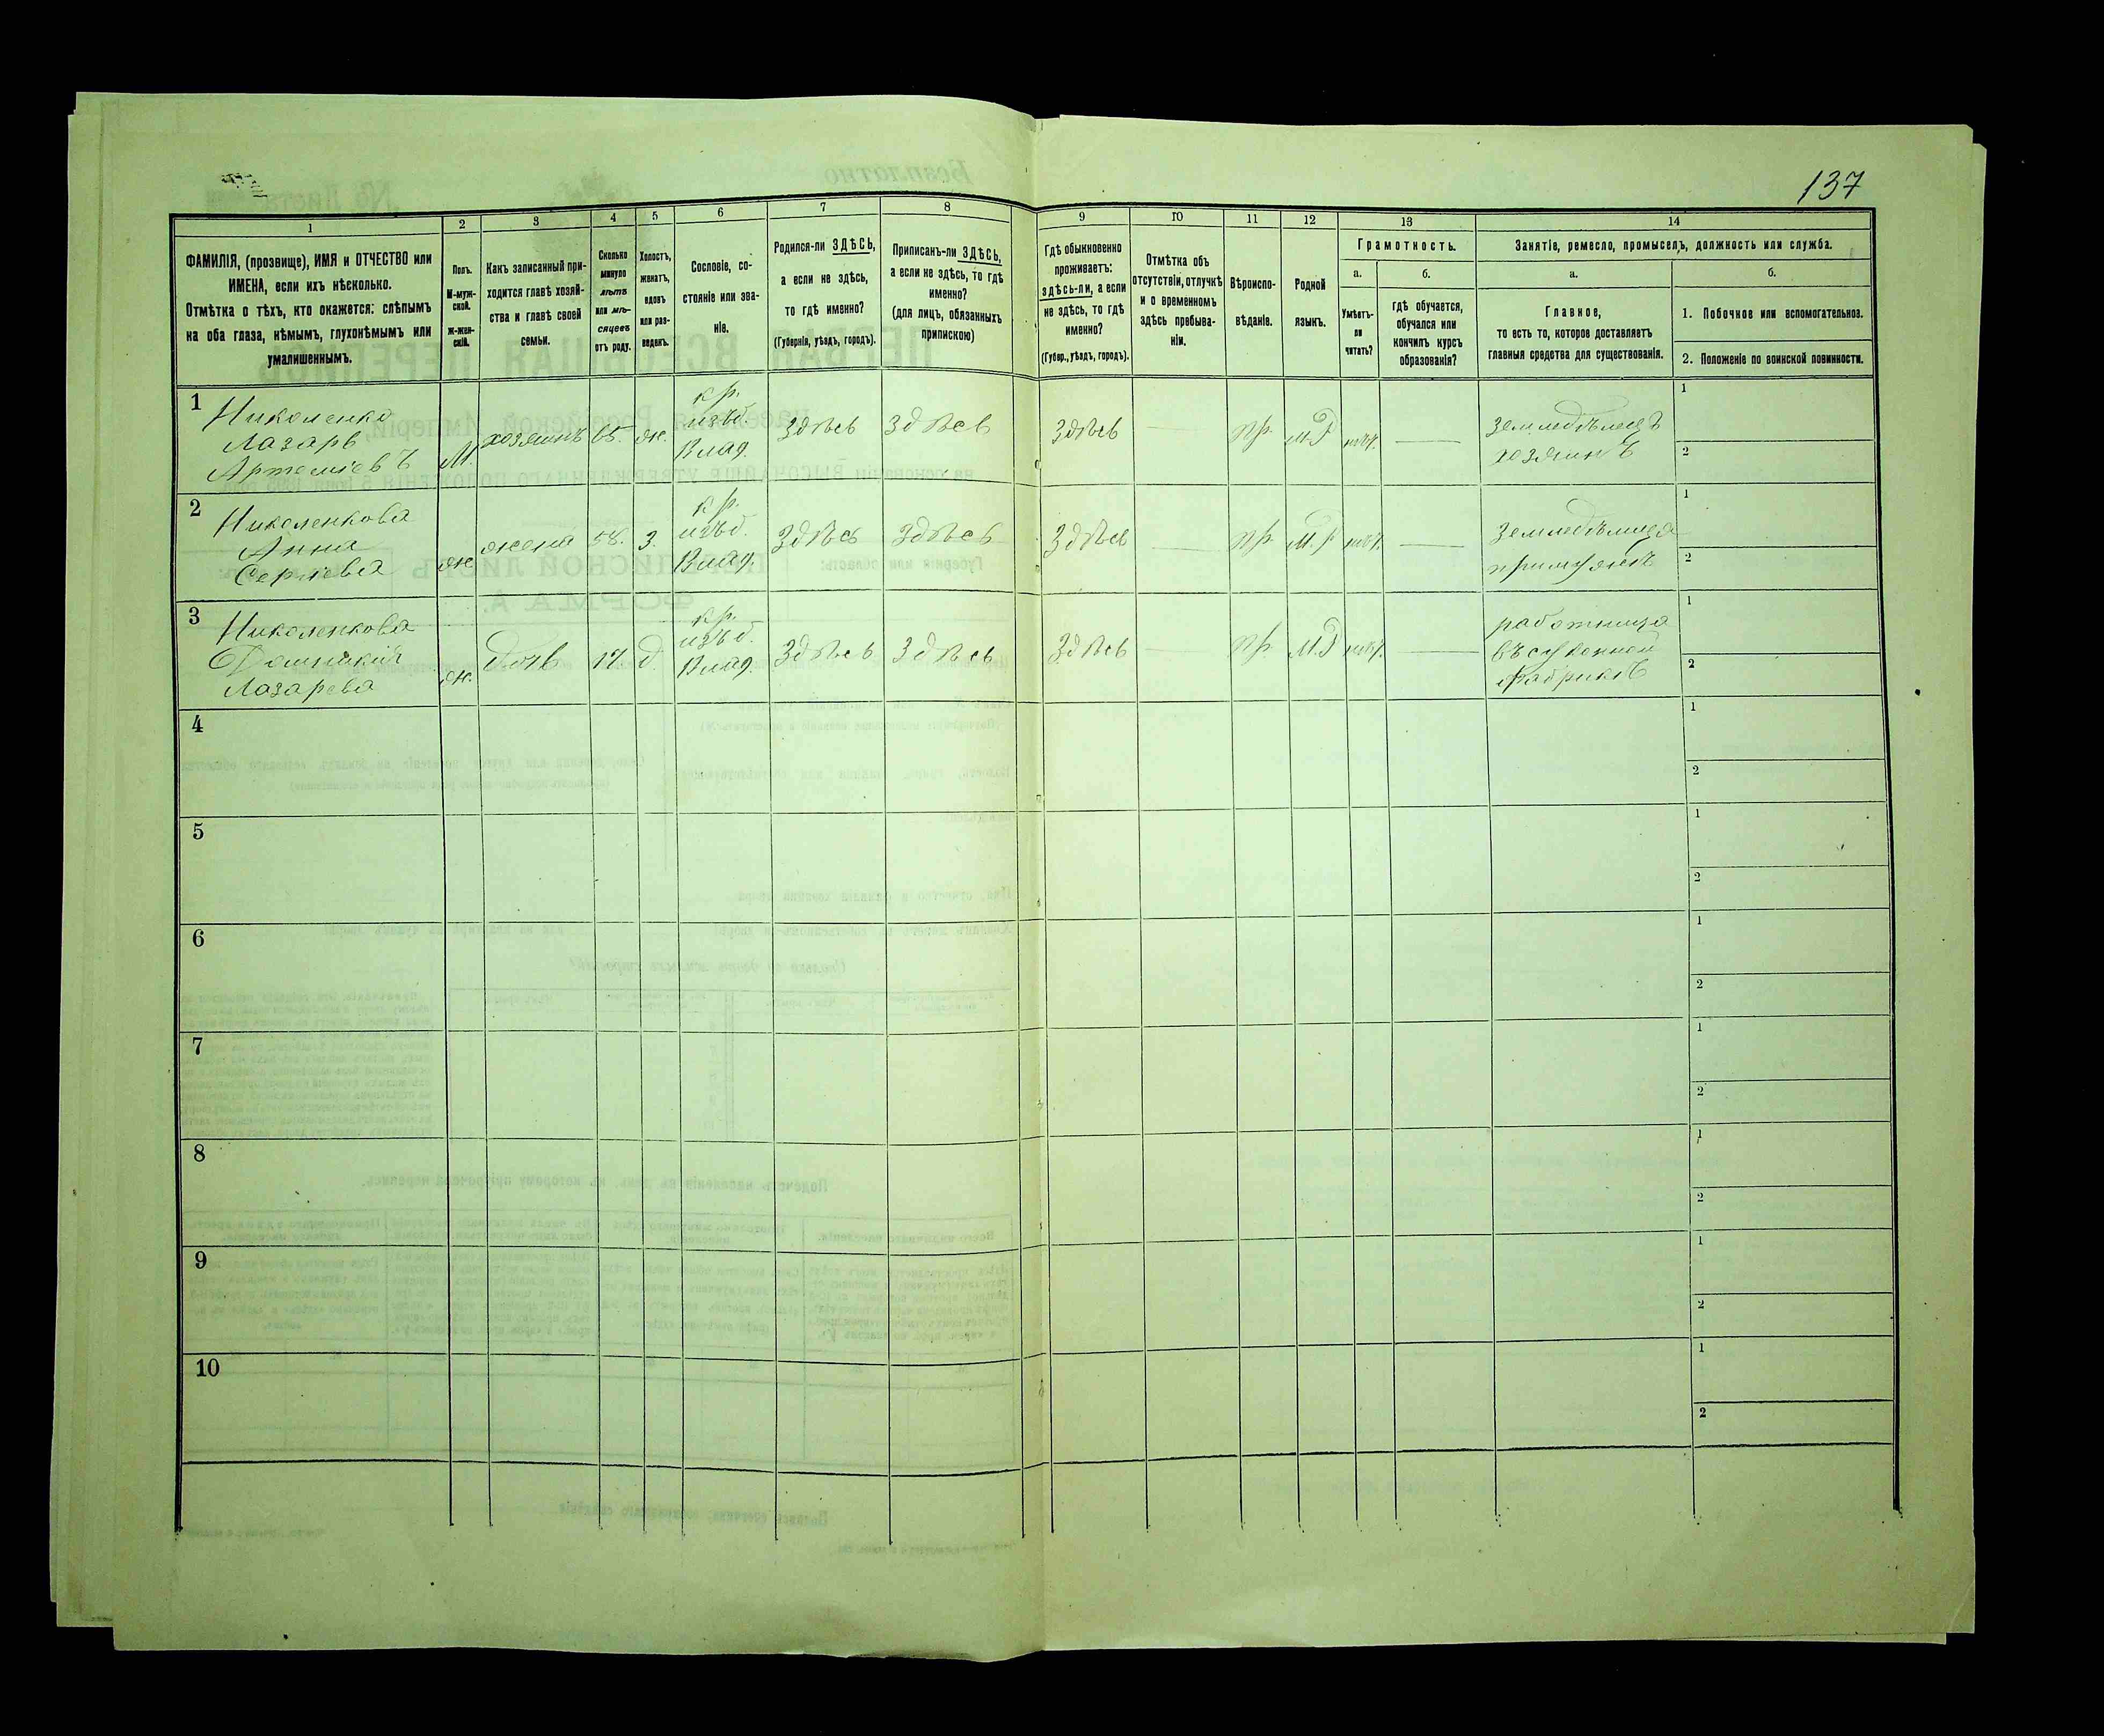 137
1
2
3
4
5
6
7
8
9
10
11
12
13
14
ФАМИЛІЯ, (прозвище), ИМЯ и ОТЧЕСТВО или
ИМЕНА, если ихъ нѣсколько.
Отмѣтка о тѣхъ, кто окажется: слѣпымъ
на оба глаза, нѣмымъ, глухонѣмымъ или
умалишеннымъ.
Полъ.
М-муж-
ской.
Ж-жен-
скій.
Какъ записанный при-
ходится главѣ хозяй-
ства и главѣ своей
семьи.
Сколько
минуло
лѣтъ
или мѣ-
сяцевъ
отъ роду.
Холостъ,
женатъ,
вдовъ
или раз-
веденъ.
Сословіе, со-
стояніе или зва-
ніе.
Родился-ли ЗДѢСЬ,
а если не здѣсь,
то гдѣ именно?
(Губернія, уѣздъ, городъ).
Приписанъ-ли ЗДѢСЬ,
а если не здѣсь, то гдѣ
именно?
(для лицъ, обязанныхъ
припискою)
Гдѣ обыкновенно
проживаетъ:
здѣсь-ли, а если
не здѣсь, то гдѣ
именно?
(Губер., уѣздъ, городъ).
Отмѣтка объ
отсутствіи, отлучкѣ
и о временномъ
здѣсь пребыва-
ніи.
Вѣроиспо-
вѣданіе.
Родной
языкъ.
Грамотность.
а.
б.
Умѣетъ-
ли
читать?
гдѣ обучается,
обучался или
кончилъ курсъ
образованія?
Занятіе, ремесло, промыселъ, должность или служба.
а.
б.
Главное,
то есть то, которое доставляетъ
главныя средства для существованія.
1. Побочное или вспомогательное.
2. Положеніе по воинской повинности.
1
Николенко
Лазарь
Артеміевъ
М.
хозяинъ
65.
ж.
кр.
изъ б.
Влад.
Здѣсь
Здѣсь
Здѣсь
пр.
М.Р
нѣтъ.
земледѣлецъ
хозяинъ
1
2
2
Николенкова
Анна
Сергѣева
ж
жена
58.
З.
кр.
изъ б.
Влад.
Здѣсь
Здѣсь
Здѣсь
пр.
М.Р
нѣтъ.
земледѣлица
при мужѣ
1
2
3
Николенкова
Лазарева
ж.
дочь
17.
д.
кр.
изъ б.
Влад.
Здѣсь
Здѣсь
Здѣсь
пр.
М.Р
нѣтъ.
работница
въ суконной
фабрикѣ
1
2
4
1
2
5
1
2
6
1
2
7
1
2
8
1
2
9
1
2
10
1
2